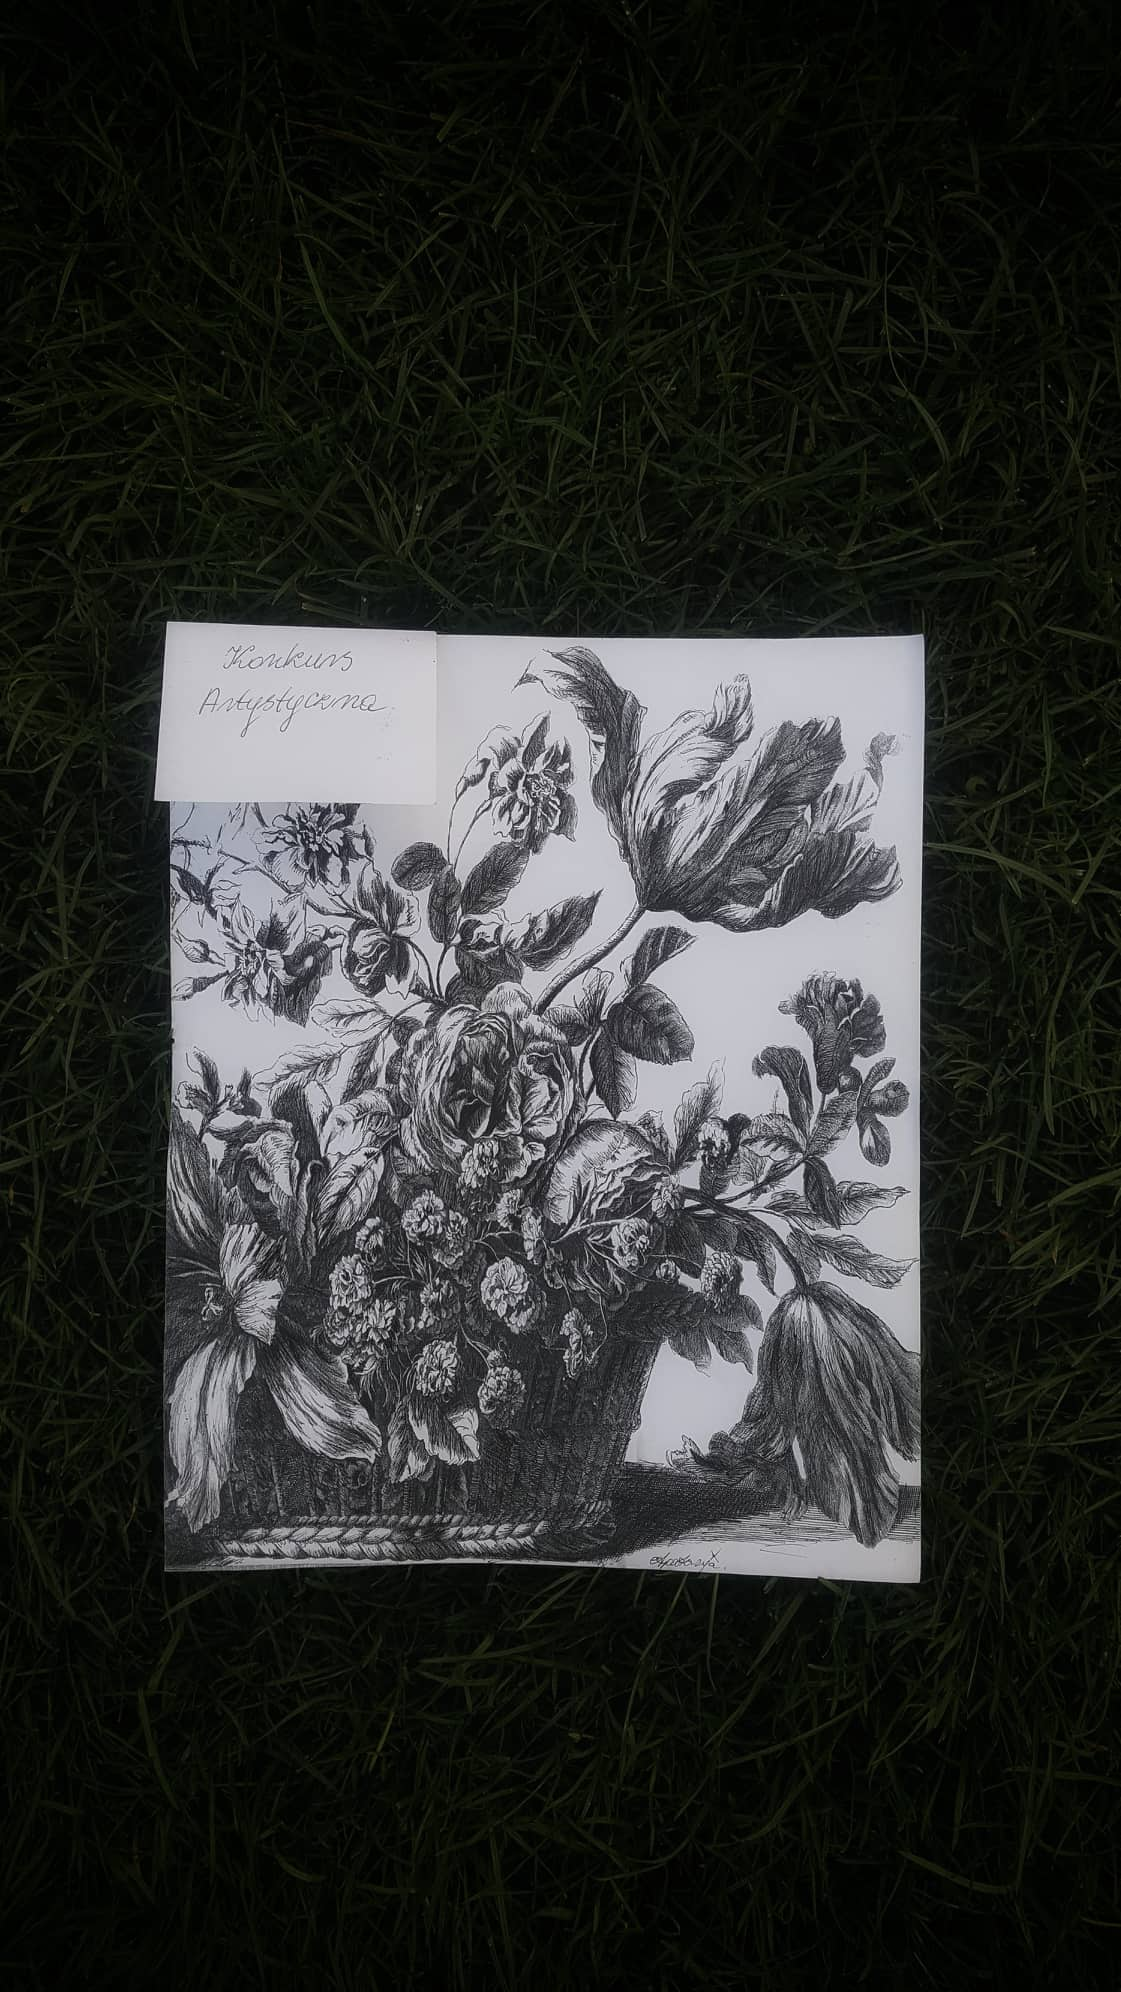 Konkurs
Artystyczna.